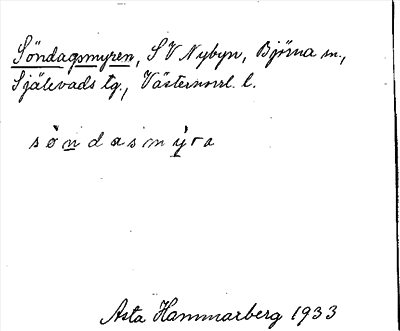 Söndagsmyren, SV Nybyn, Björna sn.,
Själevads tg., Västernorrl. l.
söndasmyra
Asta Hammarberg 1933